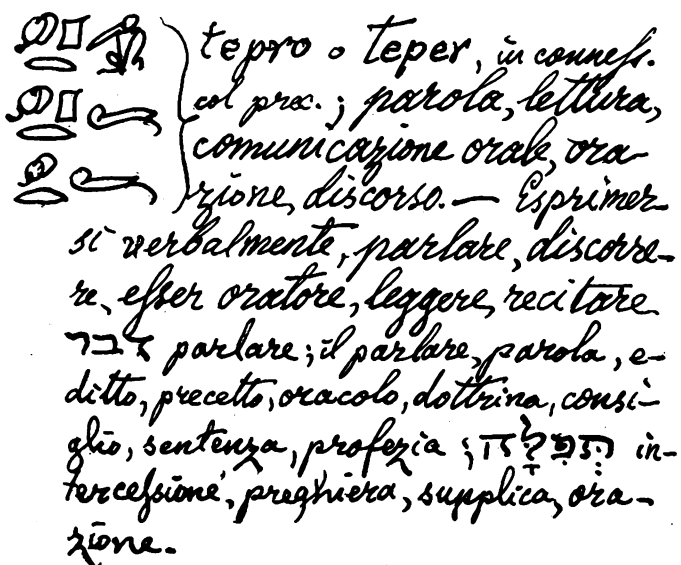 tepro o teper, in conneſs.
col prec.; parola, lettura,
comunicazione orale, ora-
zione, discorso. — Esprimer-
si verbalmente, parlare, discorre-
re, eſser oratore, leggere, recitare
דבר parlare; il parlare, parola, e-
ditto, precetto, oracolo, dottrina, consi-
glio, sentenza, profezia; תְּפִלָּה in-
terceſsione, preghiera, supplica, ora-
zione.